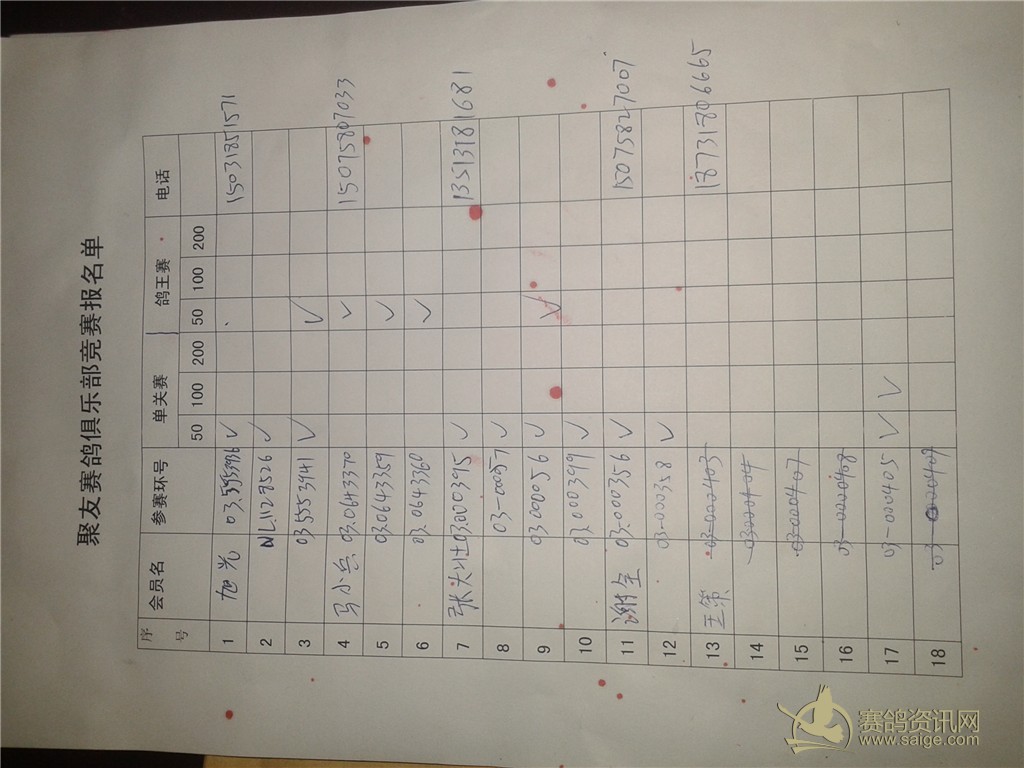 聚友赛鸽俱乐部竞赛报名单
序号 会员名 参赛环号 单关赛 鸽王赛 电话
50 100 200 50 100 200
1 旭光 ✓ 15031851571
2 NL1128526 ✓
3 03 5553941 ✓ ✓
4 马小兵 03.0643370 ✓ 15075807033
5 03.0643359 ✓
6 03.0643360 ✓
7 张大壮 03.000395 ✓ 13513181681
8 03-000397 ✓
9 03.000056 ✓ ✓
10 03.000399 ✓
11 谢全 03-000356 ✓ 15075827007
12 03-000358 ✓
13 王策 03-000403 18731806665
14 03000404
15 03-000407
16 03-000408
17 03-000405 ✓ ✓
18 03-000409
赛鸽资讯网
www.saige.com